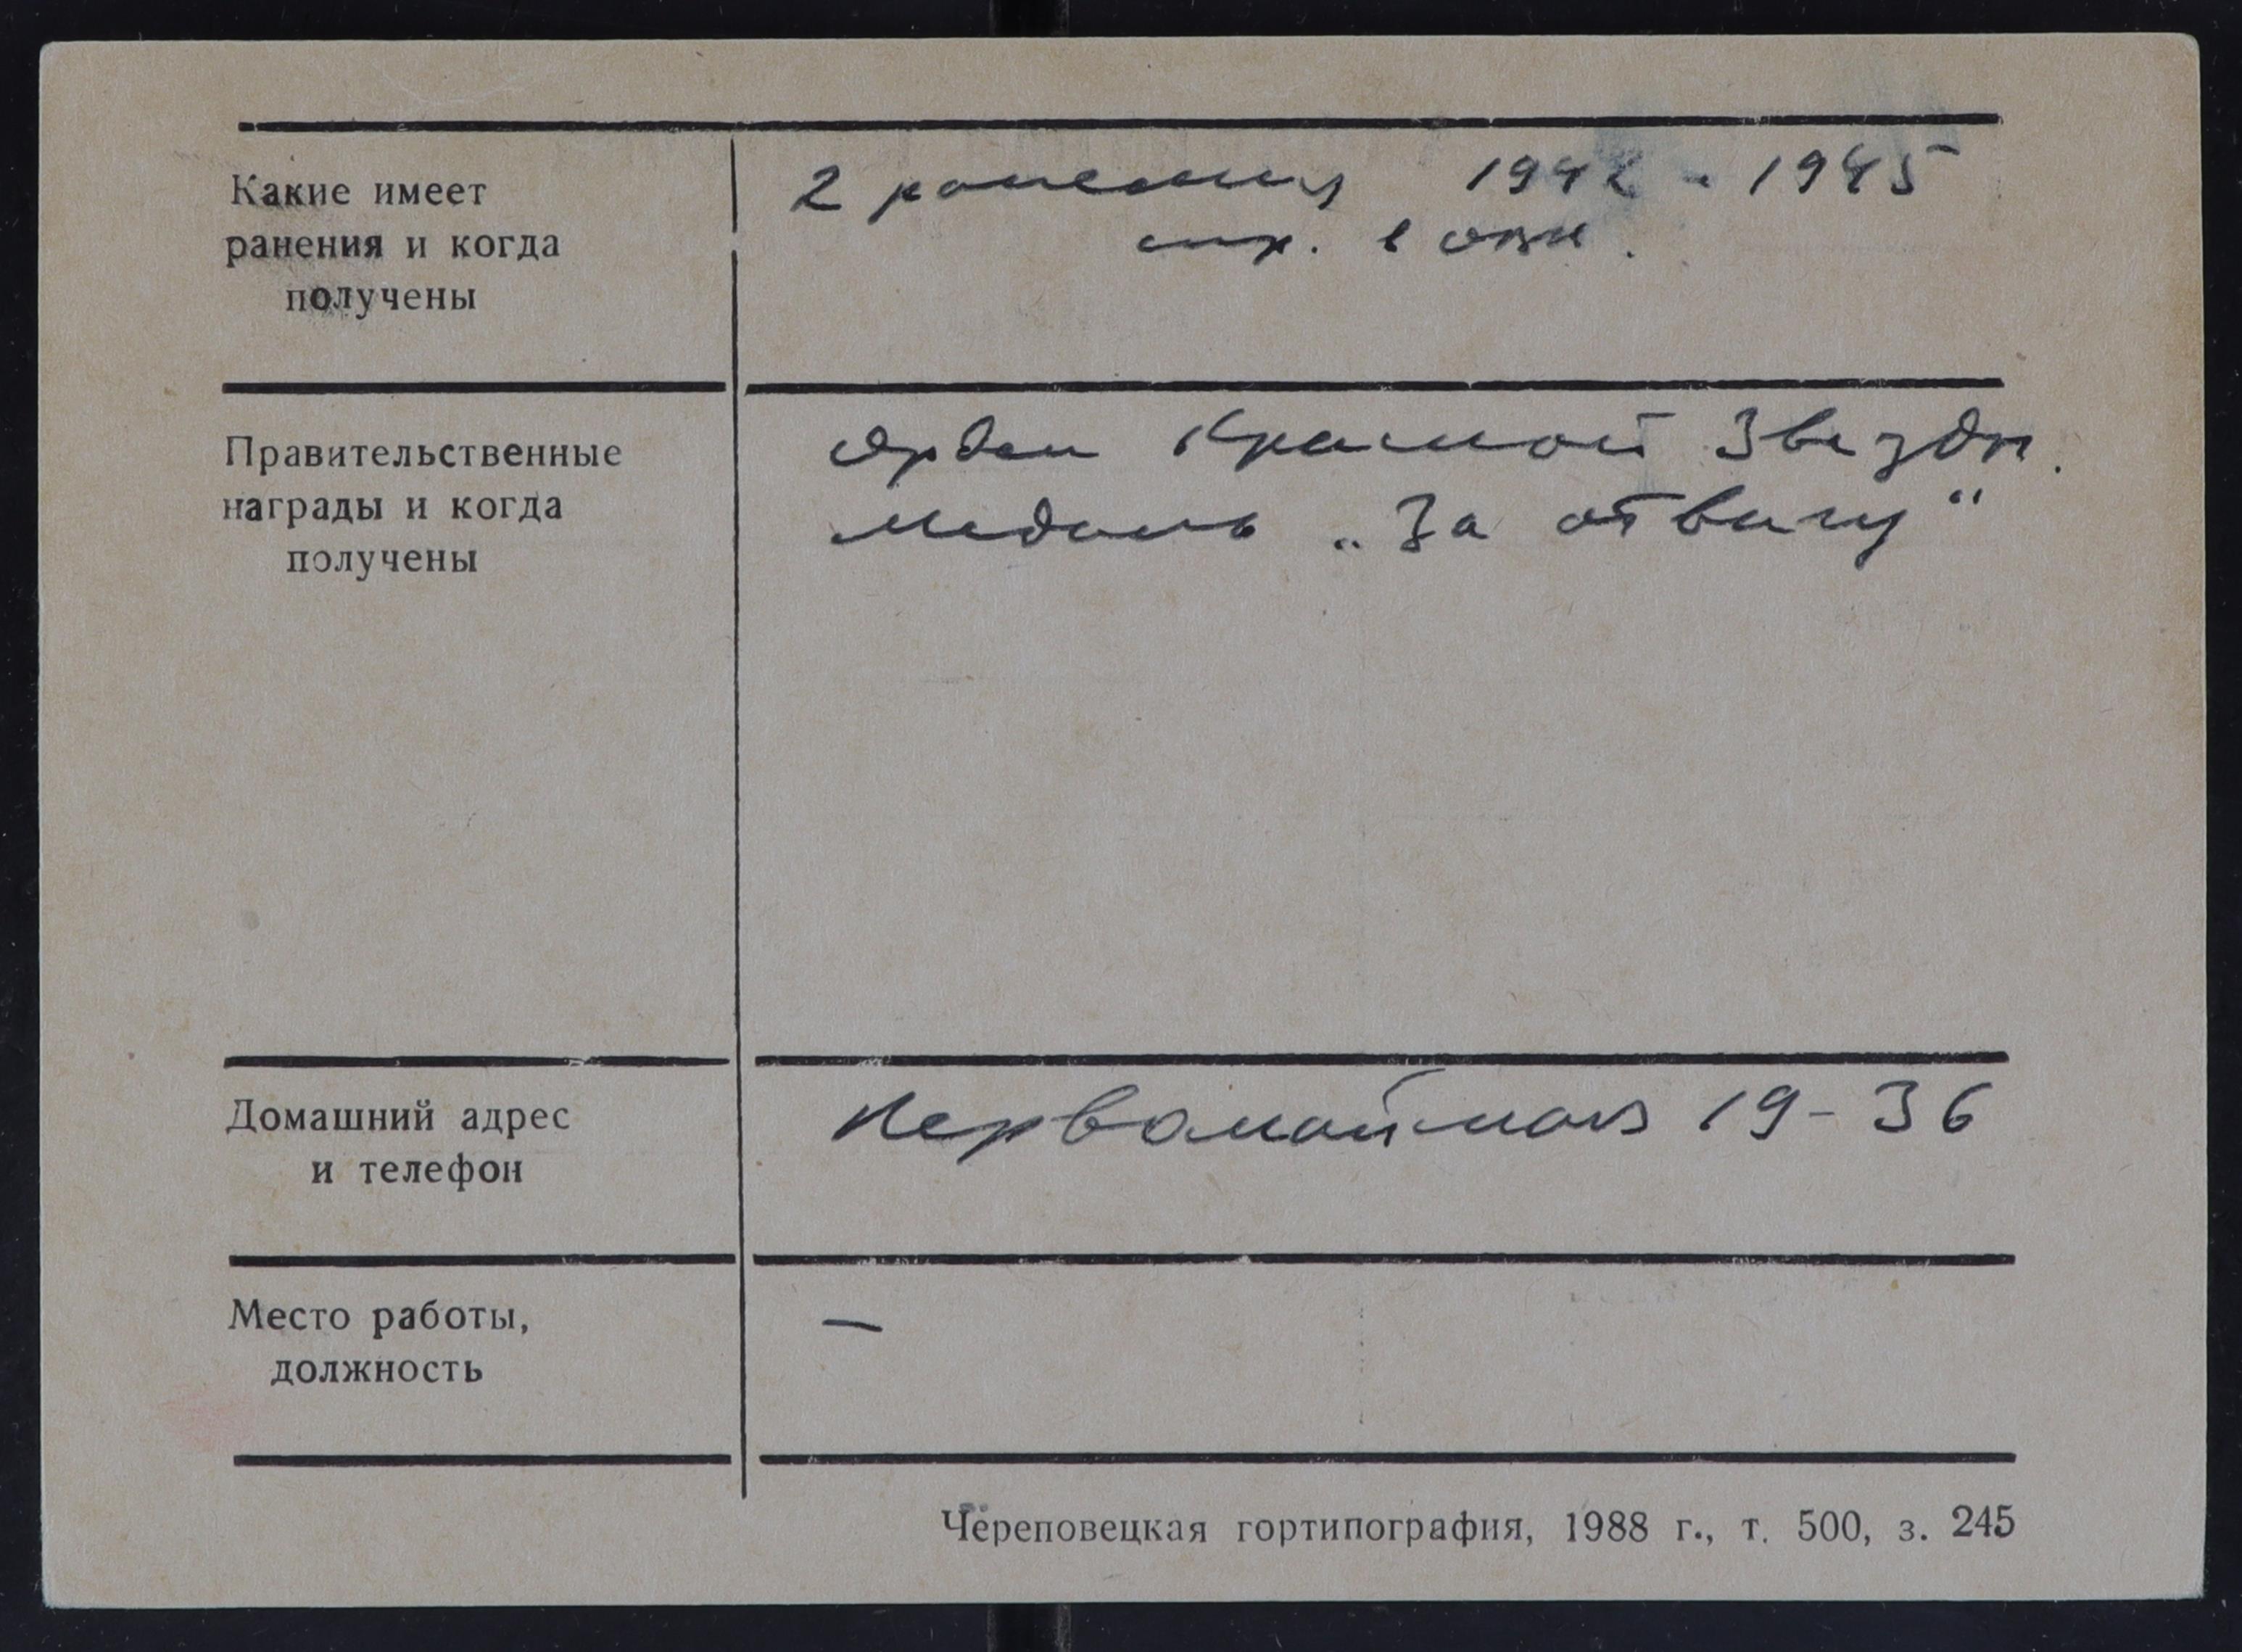 Какие имеет
ранения и когда
получены
2 ранения 1942 - 1945
Правительственные
награды и когда
получены
Орден Красной Звезды.
Медаль „За отвагу“
Домашний адрес
и телефон
Первомайская 19-36
Место работы,
должность
—
Череповецкая гортипография, 1988 г., т. 500, з. 245